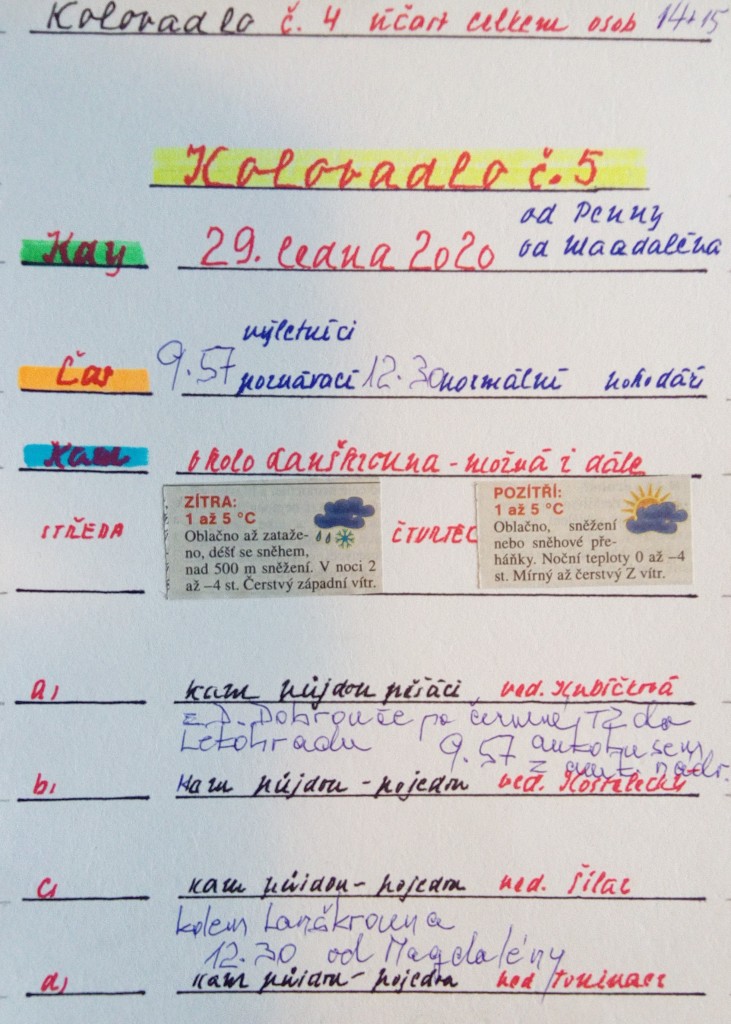 Koloradlo č. 4 účast celkem osob 14+15
Koloradlo č. 5
od Penny
Kdy 29. ledna 2020 od Maadaléna
výletníci
Čas 9.57 poznávací 12.30 normální pohodáři
Kam okolo Lanškrouna - možná i dále
STŘEDA
ZÍTRA:
1 až 5 °C
Oblačno až zataže-
no, déšť se sněhem,
nad 500 m sněžení. V noci 2
až –4 st. Čerstvý západní vítr.
ČTVRTEC
POZÍTŘÍ:
1 až 5 °C
Oblačno, sněžení
nebo sněhové pře-
háňky. Noční teploty 0 až –4
st. Mírný až čerstvý Z vítr.
a, kam půjdou pěšáci ved. Kubíčková
z D. Dobrouče po červené TZ do
Letohradu 9.57 autobusem
z aut. nádr.
b, Kam půjdou - pojedou ved. Kostelecký
c, kam půjdou - pojedou ved. Šilar
kolem Lanškrouna
12.30 od Magdalény
d, kam půjdou - pojedou ved